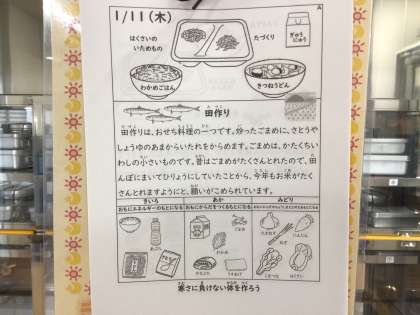 1/11(木)
A
はくさいの
いためもの
たづくり
ぎゅう
にゅう
わかめごはん
きつねうどん
田作り
田作りは、おせち料理の一つです。炒ったごまめに、さとうや
しょうゆのあまからいたれをからめます。ごまめは、かたくちい
わしの小さいものです。昔はごまめがたくさんとれたので、田ん
ぼにまいてひりょうにしていたことから、今年もお米がたく
さんとれますようにと、願いがこめられています。
きいろ
あか
みどり
おもにエネルギーのもとになる
おもにからだをつくるもとになる
あぶら
ごまめ
わかめ
にんじん
ねぎ
はくさい
寒さに負けない体を作ろう